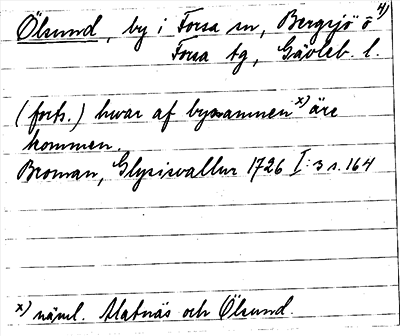 Ölsund, by i Forsa sn, Bergsjö o 4)
Forsa tg, Gävleb. l.
(forts.) hwar af bysamnen x) äre
kommen.
Broman, Glysisvallur 1726 I:3 s. 164
x) näml. Matnäs och Ölsund.